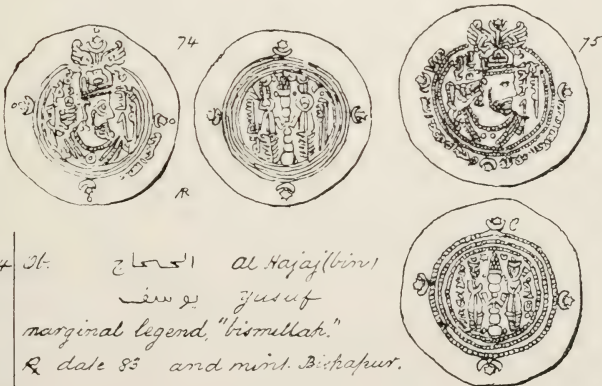 74
75
AR
4 Ob. الححاح Al Hajaj (bin)
يوسف Yusuf
marginal legend, "bismillah."
R date 83 and mint. Bishapur.